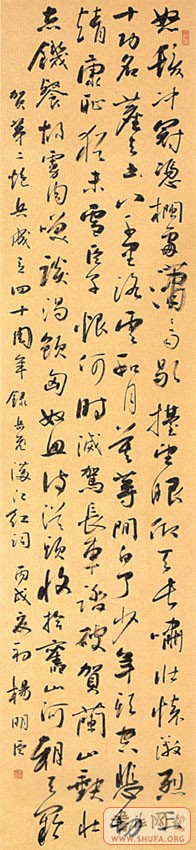 怒髮冲冠憑欄處瀟々雨歇擡望眼仰天長嘯壯懷激烈三
十功名塵與土八千里路雲和月莫等閒白了少年頭空悲切
靖康耻猶未雪臣子恨何時滅駕長車踏破賀蘭山缺壯
志饑餐胡虜肉笑談渴飲匈奴血待從頭收拾舊山河朝天闕
賀第二炮兵成立四十周年錄岳飛滿江紅詞丙戌夏初楊明臣
WWW.SHUFA.ORG